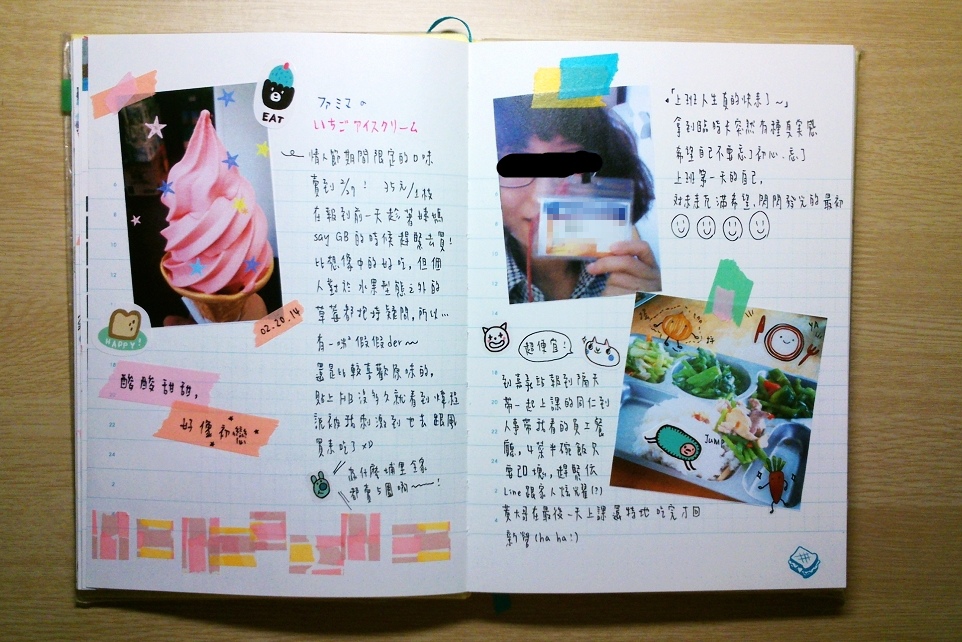 EAT
ファミマの
いちごアイスクリーム
情人節期間限定的口味
賣到 2/27! 35元/1枝
在報到前一天趁著
say GB 的時候趕緊去買!
比想像中的好吃,但個
人對於水果型態之外的
草莓都抱持疑問,所以…
有一咪咪假假der~
還是比較喜歡原味的,
貼上FB沒多久就看到
流被我刺激到也去跟風
買來吃了 XD
為什麼埔里全家
都賣
02.20.14
HAPPY!
酸酸甜甜,
好像初戀
「上班人生真的快來了~」
拿到臨時卡突然有種真實感
希望自己不要忘了初心、忘了
上班第一天的自己,
對未來充滿希望,閃閃發光的最初
超便宜!
到嘉義站報到隔天
帶一起上課的同仁到
人事帶我看的員工餐
廳,4菜半碗飯只
要20塊,趕緊依
Line 跟家人炫耀(?)
黃大哥在最後一天上課還特地吃完才回
(ha ha!)
JUMP
YA